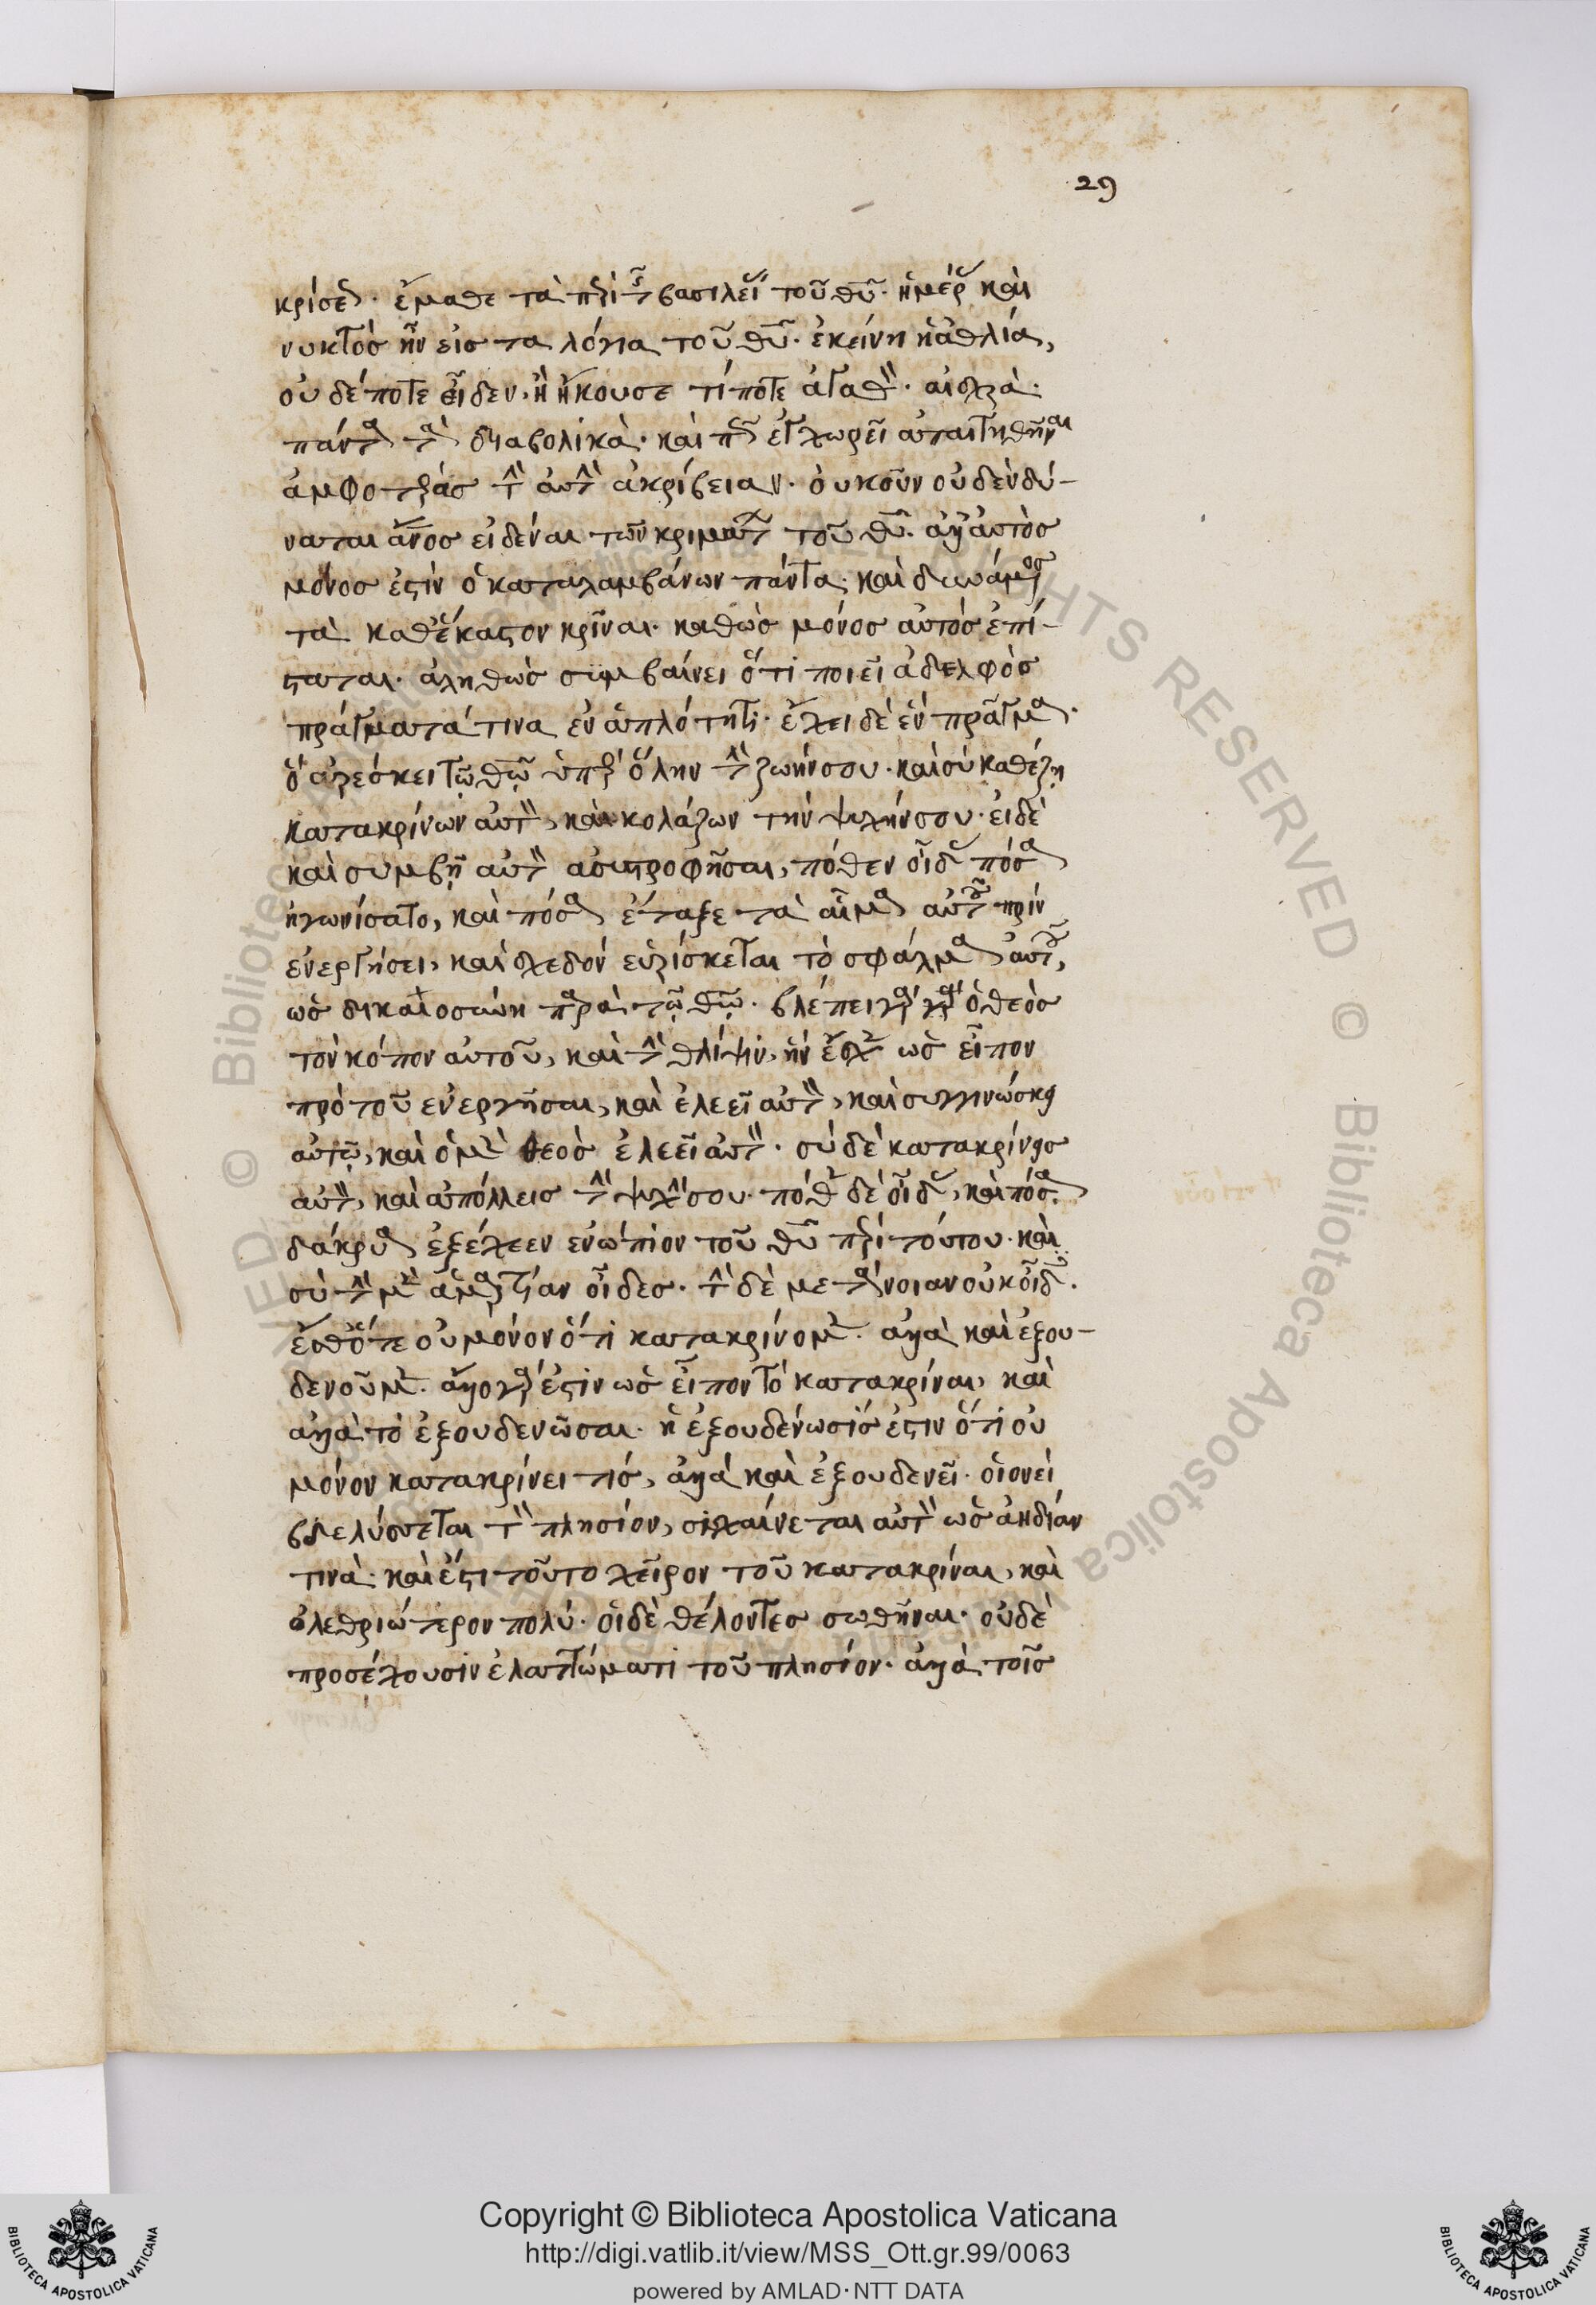 29
κρίσεως. ἔμαθε τὰ περὶ τῆς βασιλείας τοῦ θῦ. ἡμέρας καὶ
νυκτὸς ἦν εἰς τα λόγια τοῦ θῦ. ἐκείνη ἡ ἀθλία,
οὐδέποτε εἶδεν. ἢ ἤκουσε τίποτε ἀγαθὸν. αἰσχρὰ.
πάντα τὰ διαβολικὰ. καὶ πῶς ἐγχωρεῖ ἀπαιτηθῆναι
ἀμφοτέρας τὴν αὐτὴν ἀκρίβειαν. οὐκοῦν οὐδὲν δύ-
ναται ἄνος εἰδέναι τῶν κριμάτων τοῦ θῦ. ἀλλ' αὐτὸς
μόνος ἐστὶν ὁ καταλαμβάνων πάντα. καὶ δυνάμενος
τὰ καθ' ἕκαστον κρῖναι. καθὼς μόνος αὐτὸς ἐπί-
σταται. ἀληθῶς συμβαίνει ὅτι ποιεῖ ἀδελφὸς
πράγματά τινα ἐν ἁπλότητι. ἔχει δὲ ἓν πρᾶγμα.
ὃ ἀρέσκει τῷ θῷ ὑπὲρ ὅλην τὴν ζωήν σου. καὶ σὺ καθέζῃ
κατακρίνων αὐτὸν, καὶ κολάζων τὴν ψυχήν σου. εἰ δὲ
καὶ συμβῇ αὐτὸν ἀστροφῆσαι, πόθεν οἶδας πόσα
ἠγωνίσατο, καὶ πόσα ἔσταξε τὰ αἷμα αὐτοῦ πρὶν
ἐνεργήσει, καὶ σχεδὸν εὑρίσκεται τὸ σφάλμα αὐτοῦ,
ὡς δικαιοσύνη παρὰ τῷ θῷ. βλέπει γὰρ γὰρ ὁ θεὸς
τὸν κόπον αὐτοῦ, καὶ τὴν θλίψιν, ἣν ἔσχεν ὡς εἶπον
πρὸ τοῦ ἐνεργῆσαι, καὶ ἐλεεῖ αὐτὸν, καὶ συγγινώσκει
αὐτῷ, καὶ ὁ μὲν θεὸς ἐλεεῖ αὐτὸν. σὺ δὲ κατακρίνεις
αὐτὸν, καὶ ἀπόλλεις τὴν ψυχήν σου. πόθεν δὲ οἶδας, καὶ πόσα
δάκρυα ἐξέχεεν ἐνώπιον τοῦ θῦ περὶ τούτου. καὶ
σὺ τὴν μὲν ἁμαρτίαν οἶδες. τὴν δὲ μετάνοιαν οὐκ οἶδας.
ἔσθ' ὅτε οὐ μόνον ὅτι κατακρίνομεν. ἀλλὰ καὶ ἐξου-
δενοῦμεν. ἄλλο γάρ ἐστιν ὡς εἶπον τὸ κατακρίναι, καὶ
ἀλλὰ τὸ ἐξουδενῶσαι. ἡ ἐξουδένωσίς ἐστιν ὅτι οὐ
μόνον κατακρίνει τίς, ἀλλὰ καὶ ἐξουδενεῖ. οἱονεὶ
βδελύσσεται τὸν πλησίον, σιχαίνεται αὐτὸν ὡς ἀηδίαν
τινὰ. καὶ ἔστι τοῦτο χεῖρον τοῦ κατακρίναι, καὶ
ὀλεθριώτερον πολύ. οἱ δὲ θέλοντες σωθῆναι. οὐδὲ
προσέχουσιν ἐλαττώματι τοῦ πλησίον. ἀλλὰ τοῖς
Copyright © Biblioteca Apostolica Vaticana
http://digi.vatlib.it/view/MSS_Ott.gr.99/0063
powered by AMLAD·NTT DATA